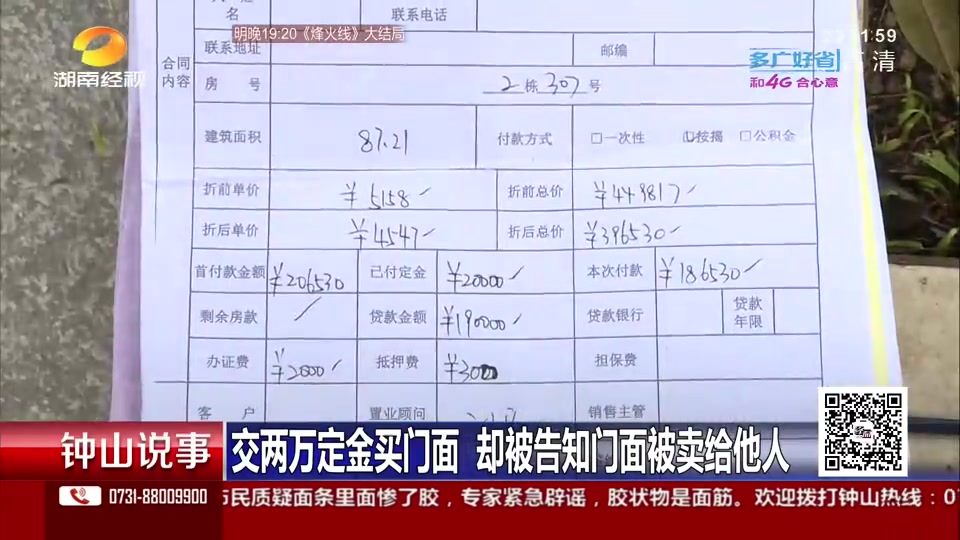 名
联系电话
明晚19:20《烽火线》大结局
湖南经视
1:59
清
多广好省
和4G 合心意
合同
内容
联系地址
邮编
房 号
2栋307号
建筑面积
87.21
付款方式
□一次性
☑按揭
□公积金
折前单价
￥5158
折前总价
￥449817
折后单价
￥4547
折后总价
￥396530
首付款金额
￥206530
已付定金
￥20000
本次付款
￥186530
剩余房款
贷款金额
￥190000
贷款银行
贷款
年限
办证费
￥2000
抵押费
￥300
担保费
客 户
置业顾问
销售主管
钟山说事
交两万定金买门面 却被告知门面被卖给他人
0731-88009900
市民质疑面条里面惨了胶，专家紧急辟谣，胶状物是面筋。欢迎拨打钟山热线：07